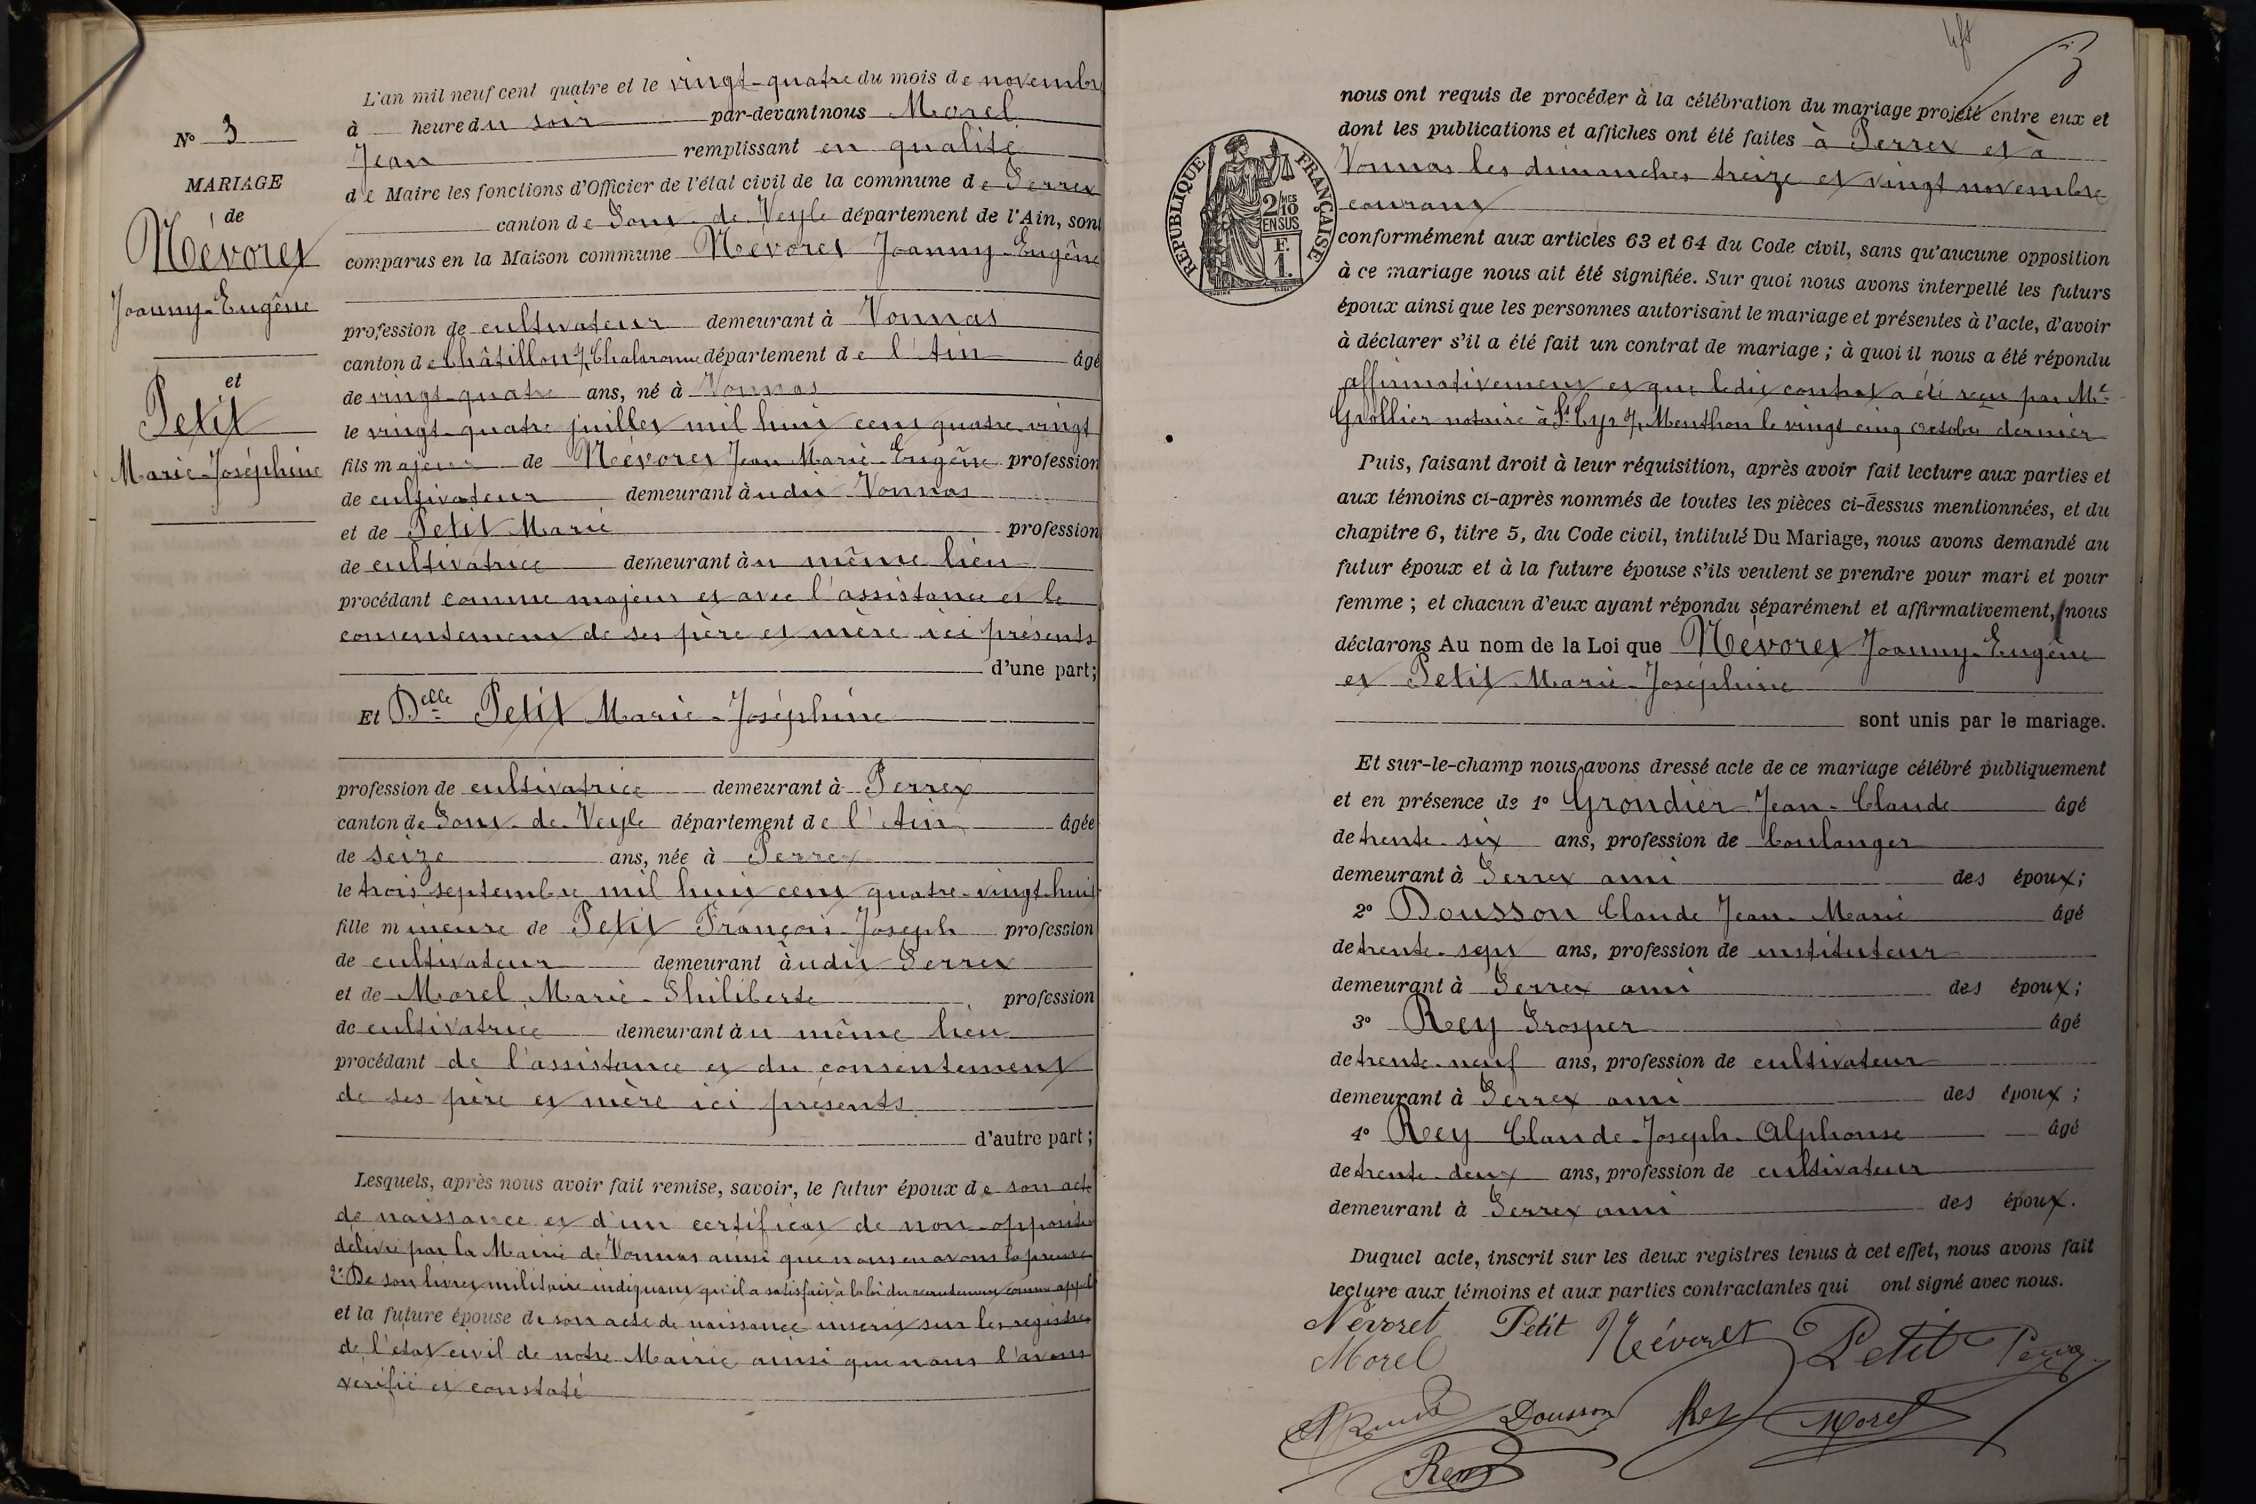 N° 3
MARIAGE
de
Névoret
Joanny-Eugène
et
Petit
Marie-Joséphine
L'an mil neuf cent quatre et le vingt-quatre du mois de novembre
à heure du soir par-devant nous Morel
Jean remplissant en qualité
de Maire les fonctions d'Officier de l'état civil de la commune de Perrex
canton de Pont-de-Veyle département de l'Ain, sont
comparus en la Maison commune Névoret Joanny-Eugène
profession de cultivateur demeurant à Vonnas
canton de Châtillon s/ Chalaronne département de l'Ain âgé
de vingt-quatre ans, né à Vonnas
le vingt-quatre juillet mil huit cent quatre-vingt
fils majeur de Névoret Jean Marie-Eugène profession
de cultivateur demeurant àudit Vonnas
et de Petit Marie profession
de cultivatrice demeurant àu même lieu
procédant comme majeur et avec l'assistance et le
consentement de ses père et mère ici présents
d'une part;
Et Delle Petit Marie-Joséphine
profession de cultivatrice demeurant à Perrex
canton de Pont-de-Veyle département de l'Ain âgée
de seize ans, née à Perrex
le trois septembre mil huit cent quatre-vingt-huit
fille mineure de Petit François-Joseph profession
de cultivateur demeurant àudit Perrex
et de Morel Marie-Philiberte profession
de cultivatrice demeurant àu même lieu
procédant de l'assistance et du consentement
de ses père et mère ici présents
d'autre part;
Lesquels, après nous avoir fait remise, savoir, le futur époux de son acte
de naissance et d'un certificat de non-opposition
délivré par la Mairie de Vonnas ainsi que nous en avons la preuve
2° De son livret militaire indiquant qu'il a satisfait à la loi du recrutement comme appelé
et la future épouse de son acte de naissance inscrit sur les registres
de l'état civil de notre Mairie ainsi que nous l'avons
vérifié et constaté
3
RÉPUBLIQUE FRANÇAISE
2/10 MES
EN SUS
F.
1.
nous ont requis de procéder à la célébration du mariage projeté entre eux et
dont les publications et affiches ont été faites à Perrex et à
Vonnas les dimanches treize et vingt novembre
courant
conformément aux articles 63 et 64 du Code civil, sans qu'aucune opposition
à ce mariage nous ait été signifiée. Sur quoi nous avons interpellé les futurs
époux ainsi que les personnes autorisant le mariage et présentes à l'acte, d'avoir
à déclarer s'il a été fait un contrat de mariage; à quoi il nous a été répondu
affirmativement et que ledit contrat a été reçu par Me
Grollier notaire à St Cyr s/ Menthon le vingt cinq octobre dernier
Puis, faisant droit à leur réquisition, après avoir fait lecture aux parties et
aux témoins ci-après nommés de toutes les pièces ci-dessus mentionnées, et du
chapitre 6, titre 5, du Code civil, intitulé Du Mariage, nous avons demandé au
futur époux et à la future épouse s'ils veulent se prendre pour mari et pour
femme; et chacun d'eux ayant répondu séparément et affirmativement, nous
déclarons Au nom de la Loi que Névoret Joanny-Eugène
et Petit Marie-Joséphine
sont unis par le mariage.
Et sur-le-champ nous avons dressé acte de ce mariage célébré publiquement
et en présence de 1° Grondier Jean-Claude âgé
de trente-six ans, profession de boulanger
demeurant à Perrex ami des époux;
2° Dousson Claude Jean-Marie âgé
de trente-sept ans, profession de instituteur
demeurant à Perrex ami des époux;
3° Rey Prosper âgé
de trente-neuf ans, profession de cultivateur
demeurant à Perrex ami des époux;
4° Rey Claude-Joseph-Alphonse âgé
de trente-deux ans, profession de cultivateur
demeurant à Perrex ami des époux.
Duquel acte, inscrit sur les deux registres tenus à cet effet, nous avons fait
lecture aux témoins et aux parties contractantes qui ont signé avec nous.
Névoret Petit Névoret Petit
Morel
Dousson Rey Morel
Rey